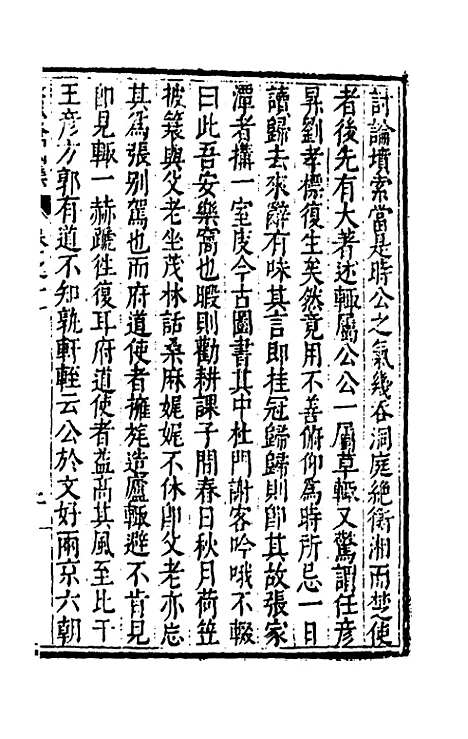 討論墳索當是時公之氣幾吞洞庭絶衡湘而楚使
者後先有大著述輙屬公公一屬草輙又驚謂任彦
昇劉孝標復生矣然竟用不善俯仰為時所忌一日
讀歸去來辭有味其言即挂冠歸歸則卽其故張家
潭者搆一室庋今古圖書其中杜門謝客吟哦不輟
曰此吾安樂窩也暇則勸耕課子閒春日秋月荷笠
披簑與父老坐茂林話桑麻娓娓不休卽父老亦忘
其為張别駕也而府道使者擁旄造廬輙避不肯見
卽見輙一赫蹏徃復耳府道使者益高其風至比干
王彦方郭有道不知孰軒輊云公於文好兩京六朝